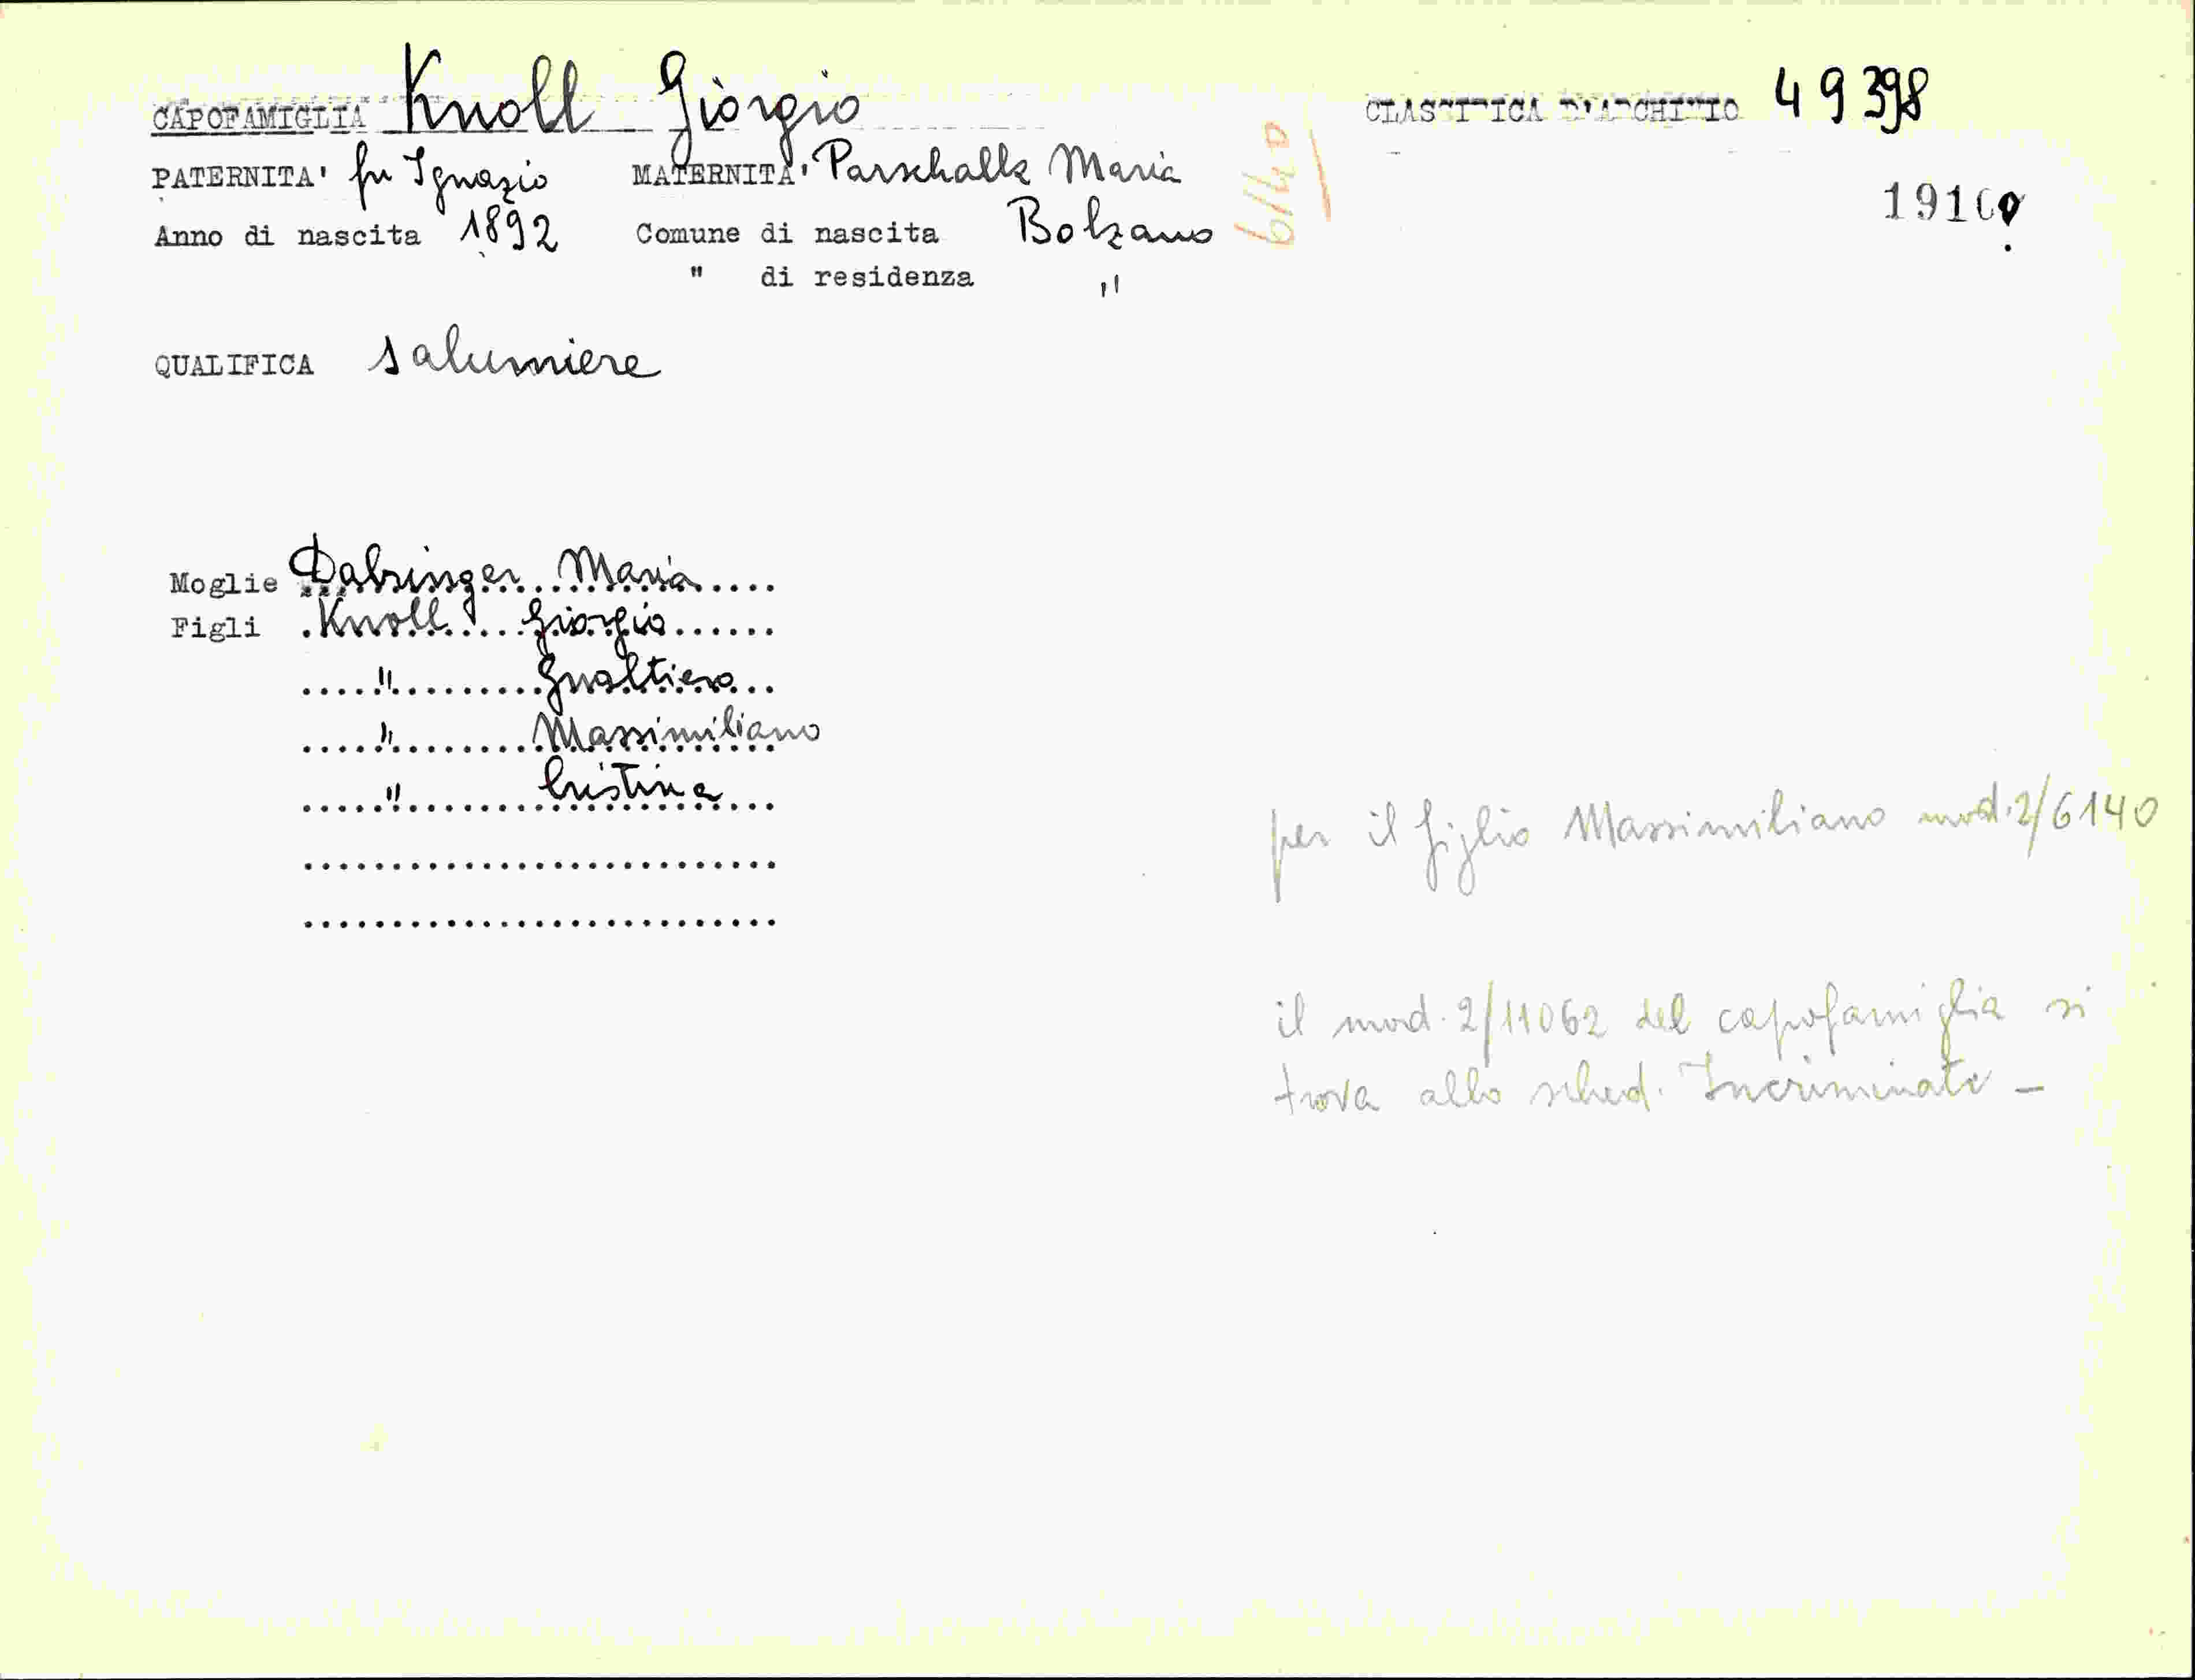 CAPOFAMIGLIA Knoll Giorgio CLASSIFICA D'ARCHIVIO 49398
PATERNITA' fu Ignazio MATERNITA' Parschalk Maria
Anno di nascita 1892 Comune di nascita Bolzano
" di residenza "
6140
QUALIFICA salumiere
Moglie Dabringer Maria
Figli Knoll Giorgio
" Gualtiero
" Massimiliano
" Cristina
per il figlio Massimiliano mod. 2/6140
il mod. 2/11062 del capofamiglia si
trova allo sched. Incriminati -